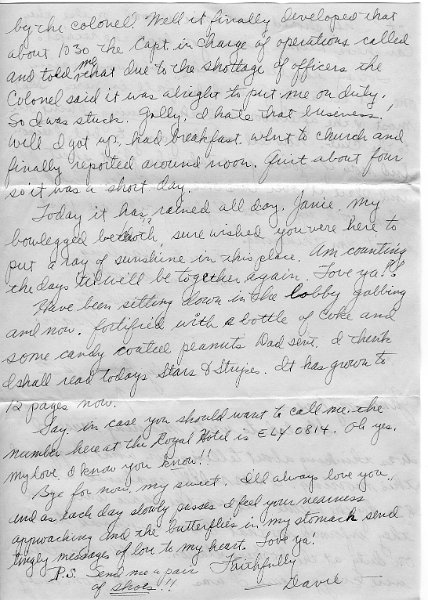 by the colonel. Well it finally developed that
about 1030 the Capt in charge of operations called
and told me that due to the shortage of officers the
Colonel said it was alright to put me on duty.
So I was stuck. Golly, I hate that business!
Well I got up, had breakfast, went to church and
finally reported around noon. Quit about four
so it was a short day.
Today it has rained all day. Janie, my
bowlegged betroth, sure wished you were here to
put a ray of sunshine in this place. Am counting
the days till we'll be together again. Love ya!!
Have been sitting down in the lobby gabbing
and now, fortified with a bottle of Coke and
some candy coated peanuts Dad sent, I think
I shall read todays Stars & Stripes. It has grown to
12 pages now.
Say, in case you should want to call me, the
number here at the Royal Hotel is ELY 0814. Oh yes,
my love, I know you know!!
Bye for now, my sweet. I'll always love you
and as each day slowly passes I feel your nearness
approaching and the butterflies in my stomach send
tingly messages of love to my heart. Love ya!
Faithfully
P.S. Send me a pair
of shoes!!
— Dave —